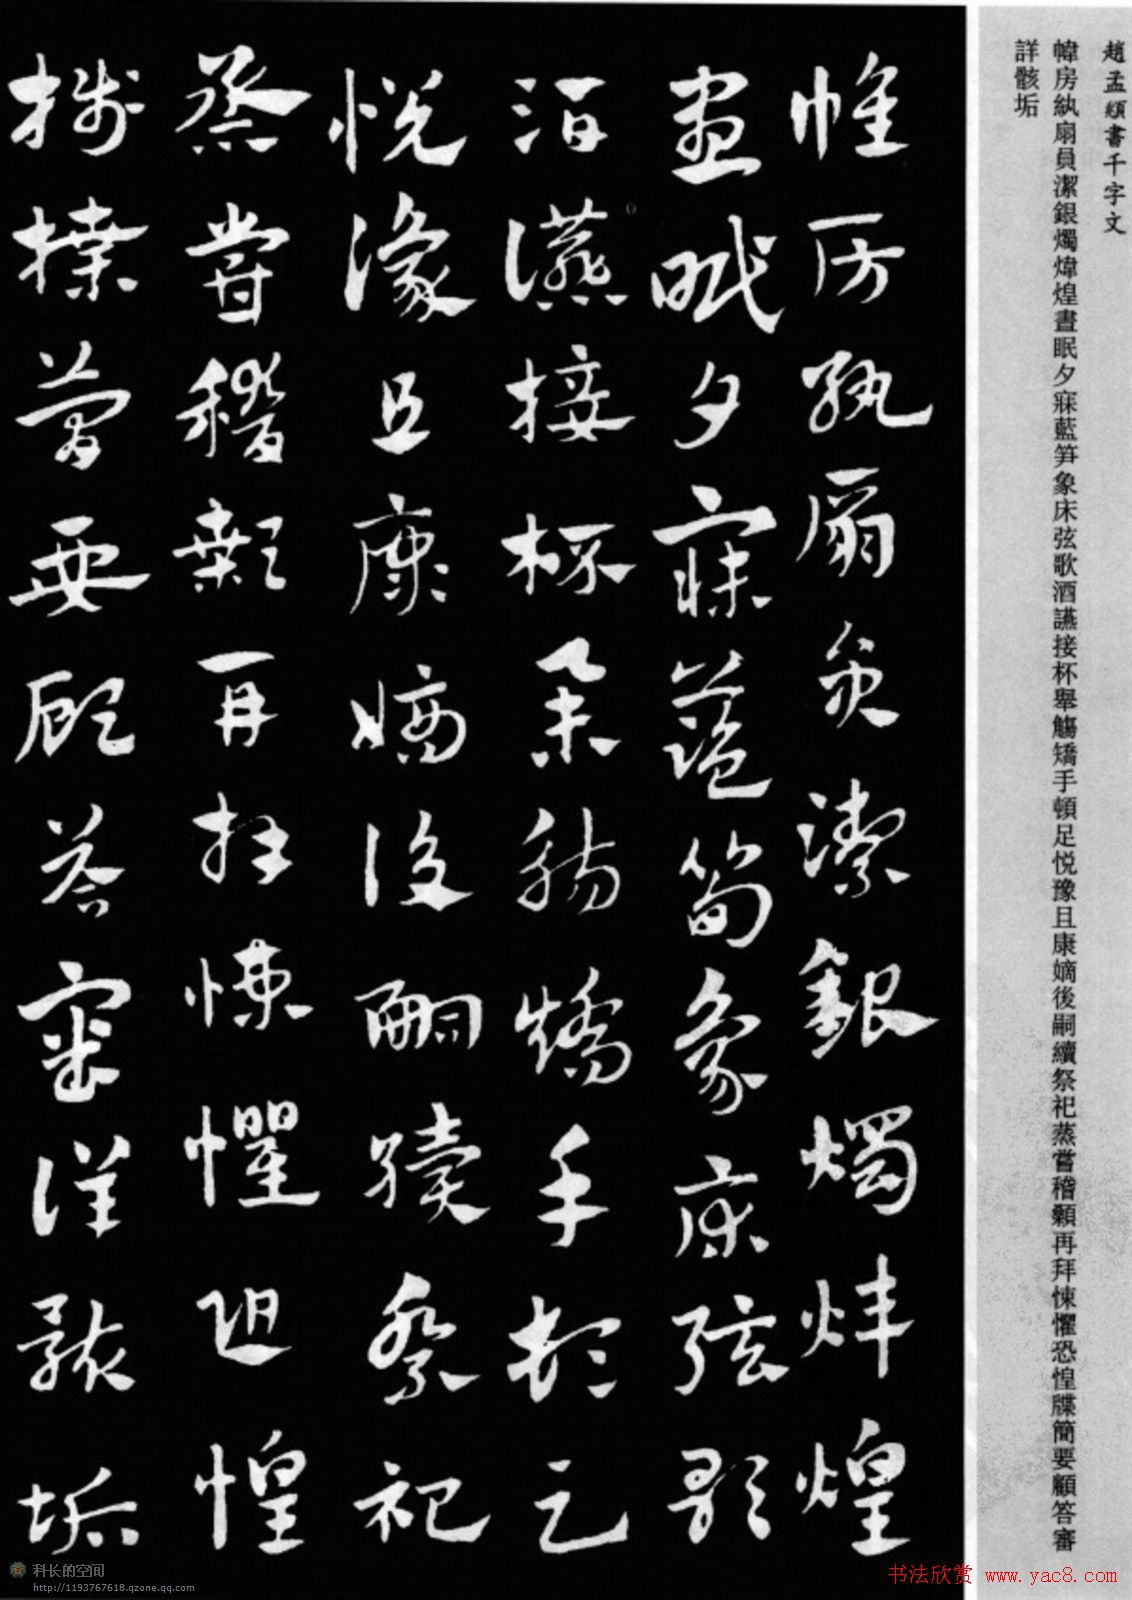 趙孟頫書千字文
幃房紈扇員潔銀燭煒煌晝眠夕寐藍笋象床弦歌酒讌接杯舉觴矯手頓足悦豫且康嫡後嗣續祭祀蒸嘗稽顙再拜悚懼恐惶牒簡要顧答審
詳骸垢
帷房紈扇員潔銀燭煒煌
晝眠夕寐藍笋象床弦歌
酒讌接杯舉觴矯手頓足
悦豫且康嫡後嗣續祭祀
蒸嘗稽顙再拜悚懼恐惶
牋牒簡要顧答審詳骸垢
科长的空间
http://1193767618.qzone.qq.com
书法欣赏 www.yac8.com